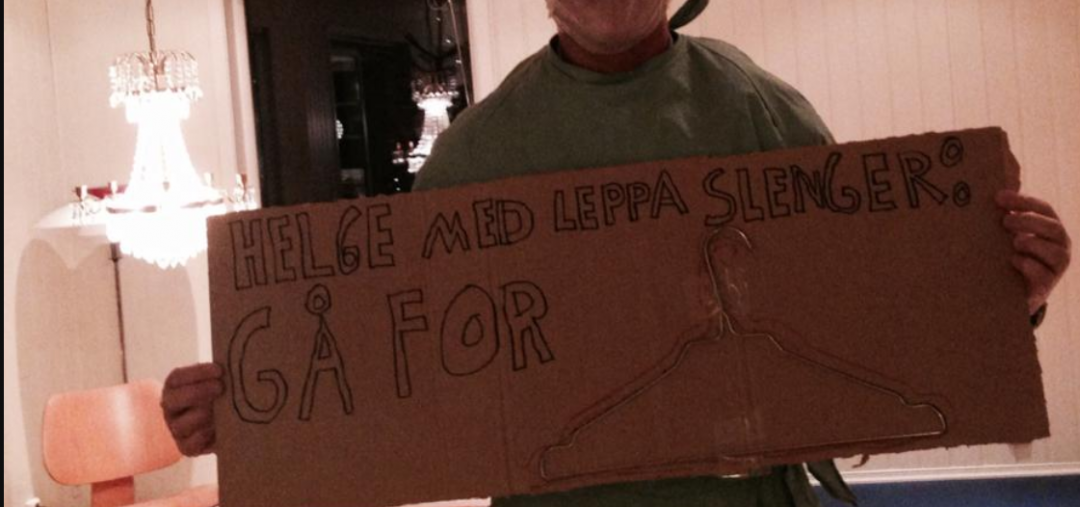 HELGE MED LEPPA SLENGER:
GÅ FOR